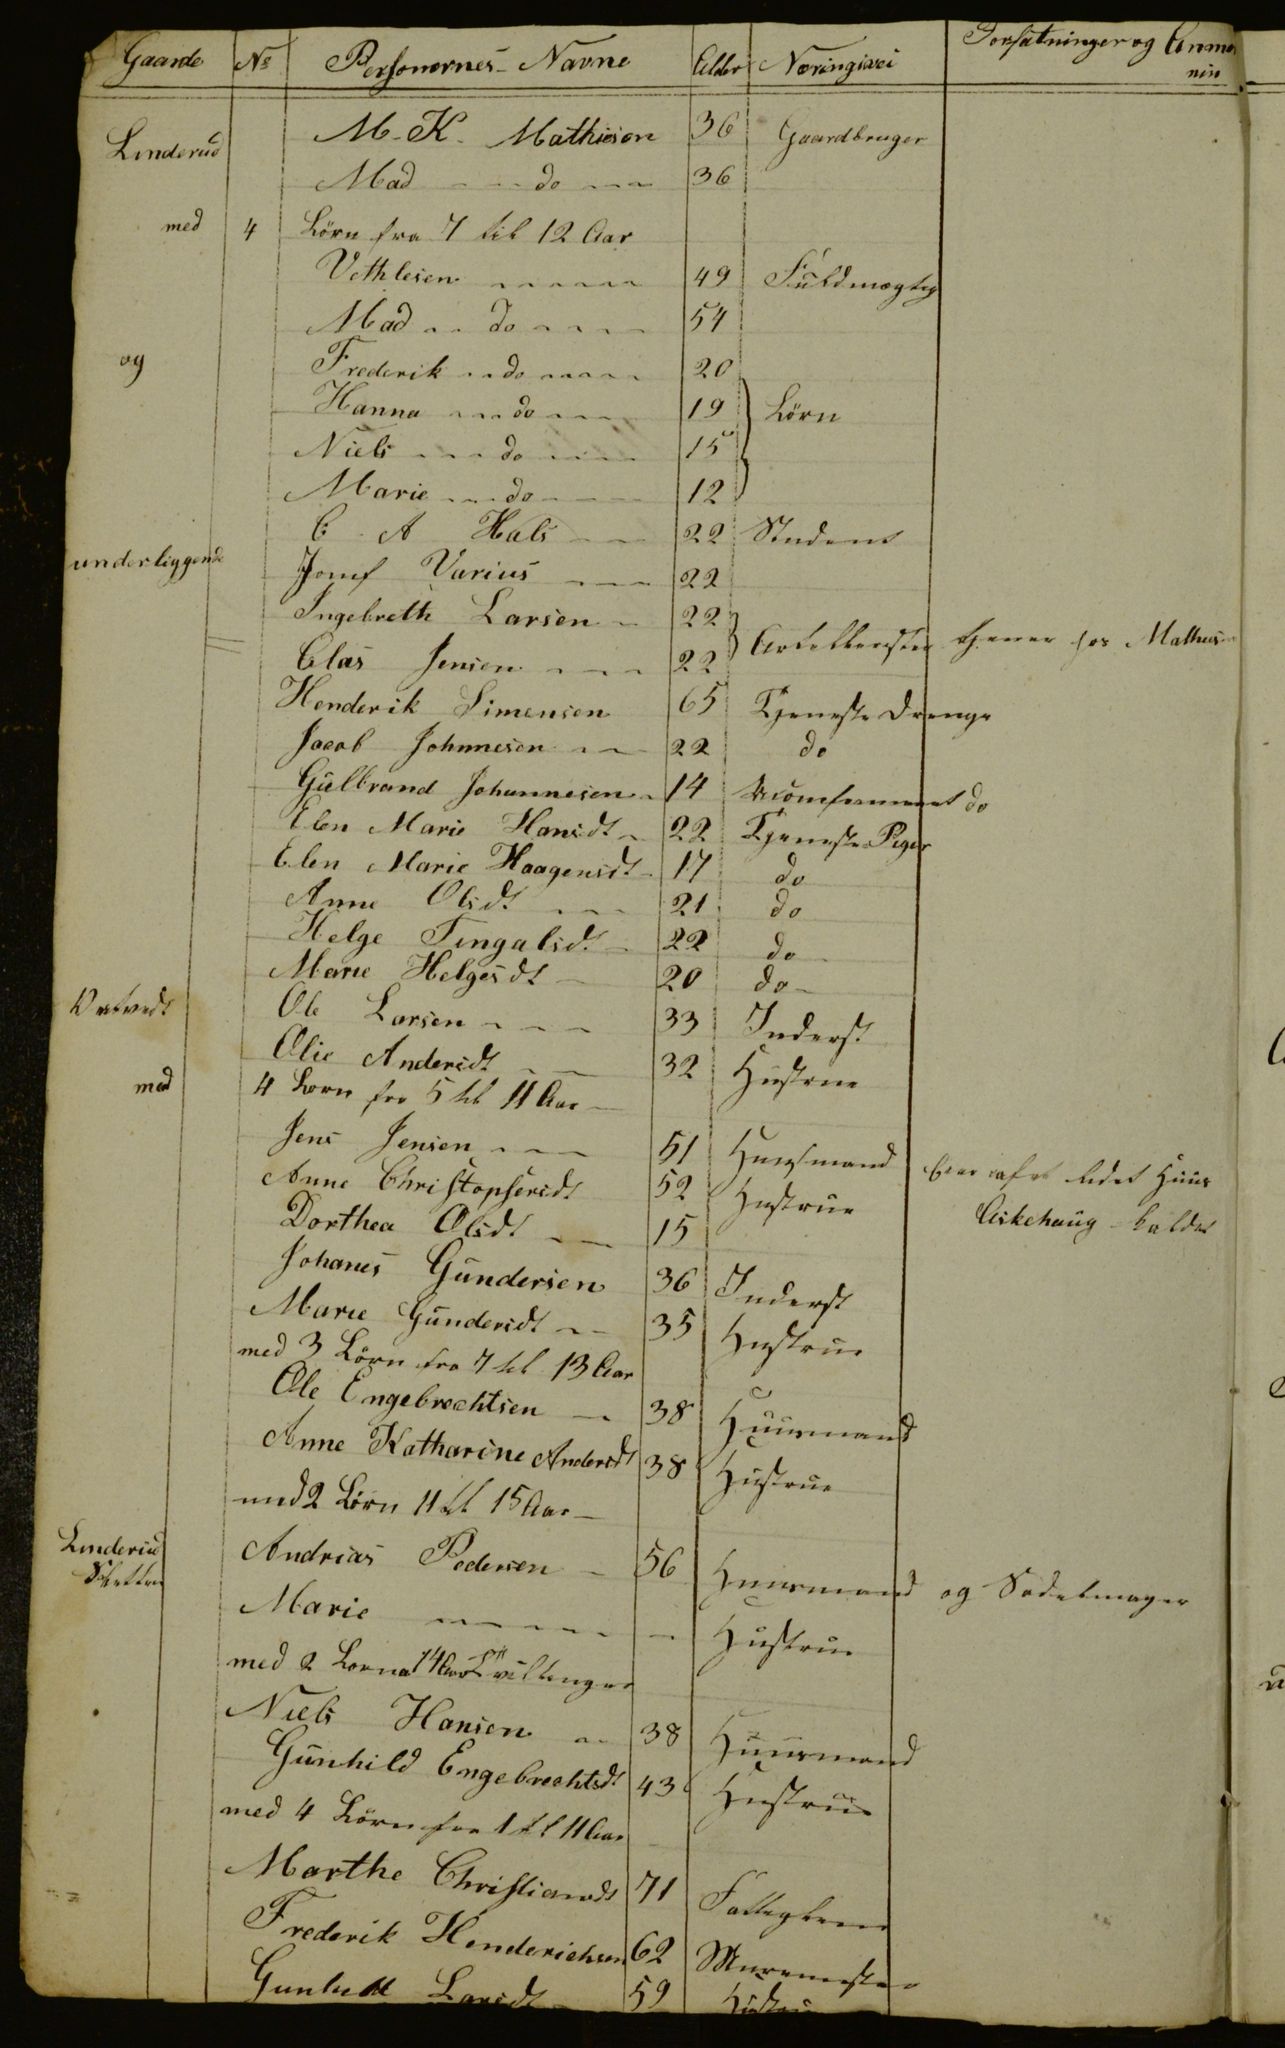 Gaarde № Personernes Navne Alder Næringivei Forsatninger og Anmærnin
Linderud M. K. Mathiesen 36 Gaardbruger
Mad do 36
med 4 Börn fra 7 til 12 Aar
Vethlesen 49 Fuldmægtig
Mad do 54
og Frederik do 20
Hanna do 19 Börn
Niels do 15
Marie do 12
C. A Hals 22 Student
underliggende Jomf Varius 22
Ingebreth Larsen 22
Clas Jensen 22 tjener hos Mathies
Henderik Simensen 65 Tjeneste Drenge
Jacob Johnnesen 22 do
Gulbrand Johannesen 14 uconfirmeret do
Elen Marie Hansdt 22 Tjeneste Piger
Elen Marie Haagensdt 17 do
Anne Olsdt 21 do
Helge Tingalsdt 22 do
Marie Helgesdt 20 do
Vatvedt Ole Larsen 33 Inderst
Olie Andersdt 32 Hustrue
med 4 Born fra 5 til 11 Aar
Jens Jensen 51 Huusmand lidet Huus
Anne Christophersdt 52 Hustrue Askehaug kaldet
Dorthea Olsdt 15
Johanes Gundersen 36 Inderst
Marie Gundersdt 35 Hustrue
med 3 Börn fra 7 til 13 Aar
Ole Engebrechtsen 38 Huusmand
Anne Katharine Andersdt 38 Hustrue
med 2 Börn 11 til 15 Aar
Linderud Andrias Pedersen 56 Huusmand og Sadelmager
Sletten
Marie Hustrue
med 2 Born a 14 Aar Tvillinger
Niels Hansen 38 Huusmand
Gunhild Engebrechtsdt 43 Hustrue
med 4 Börn fra 1 til 11 Aar
Marthe Christiansdt 71
Frederik Henderichsen 62 Muurmester
Gunhild Larsdt 59 Hustrue